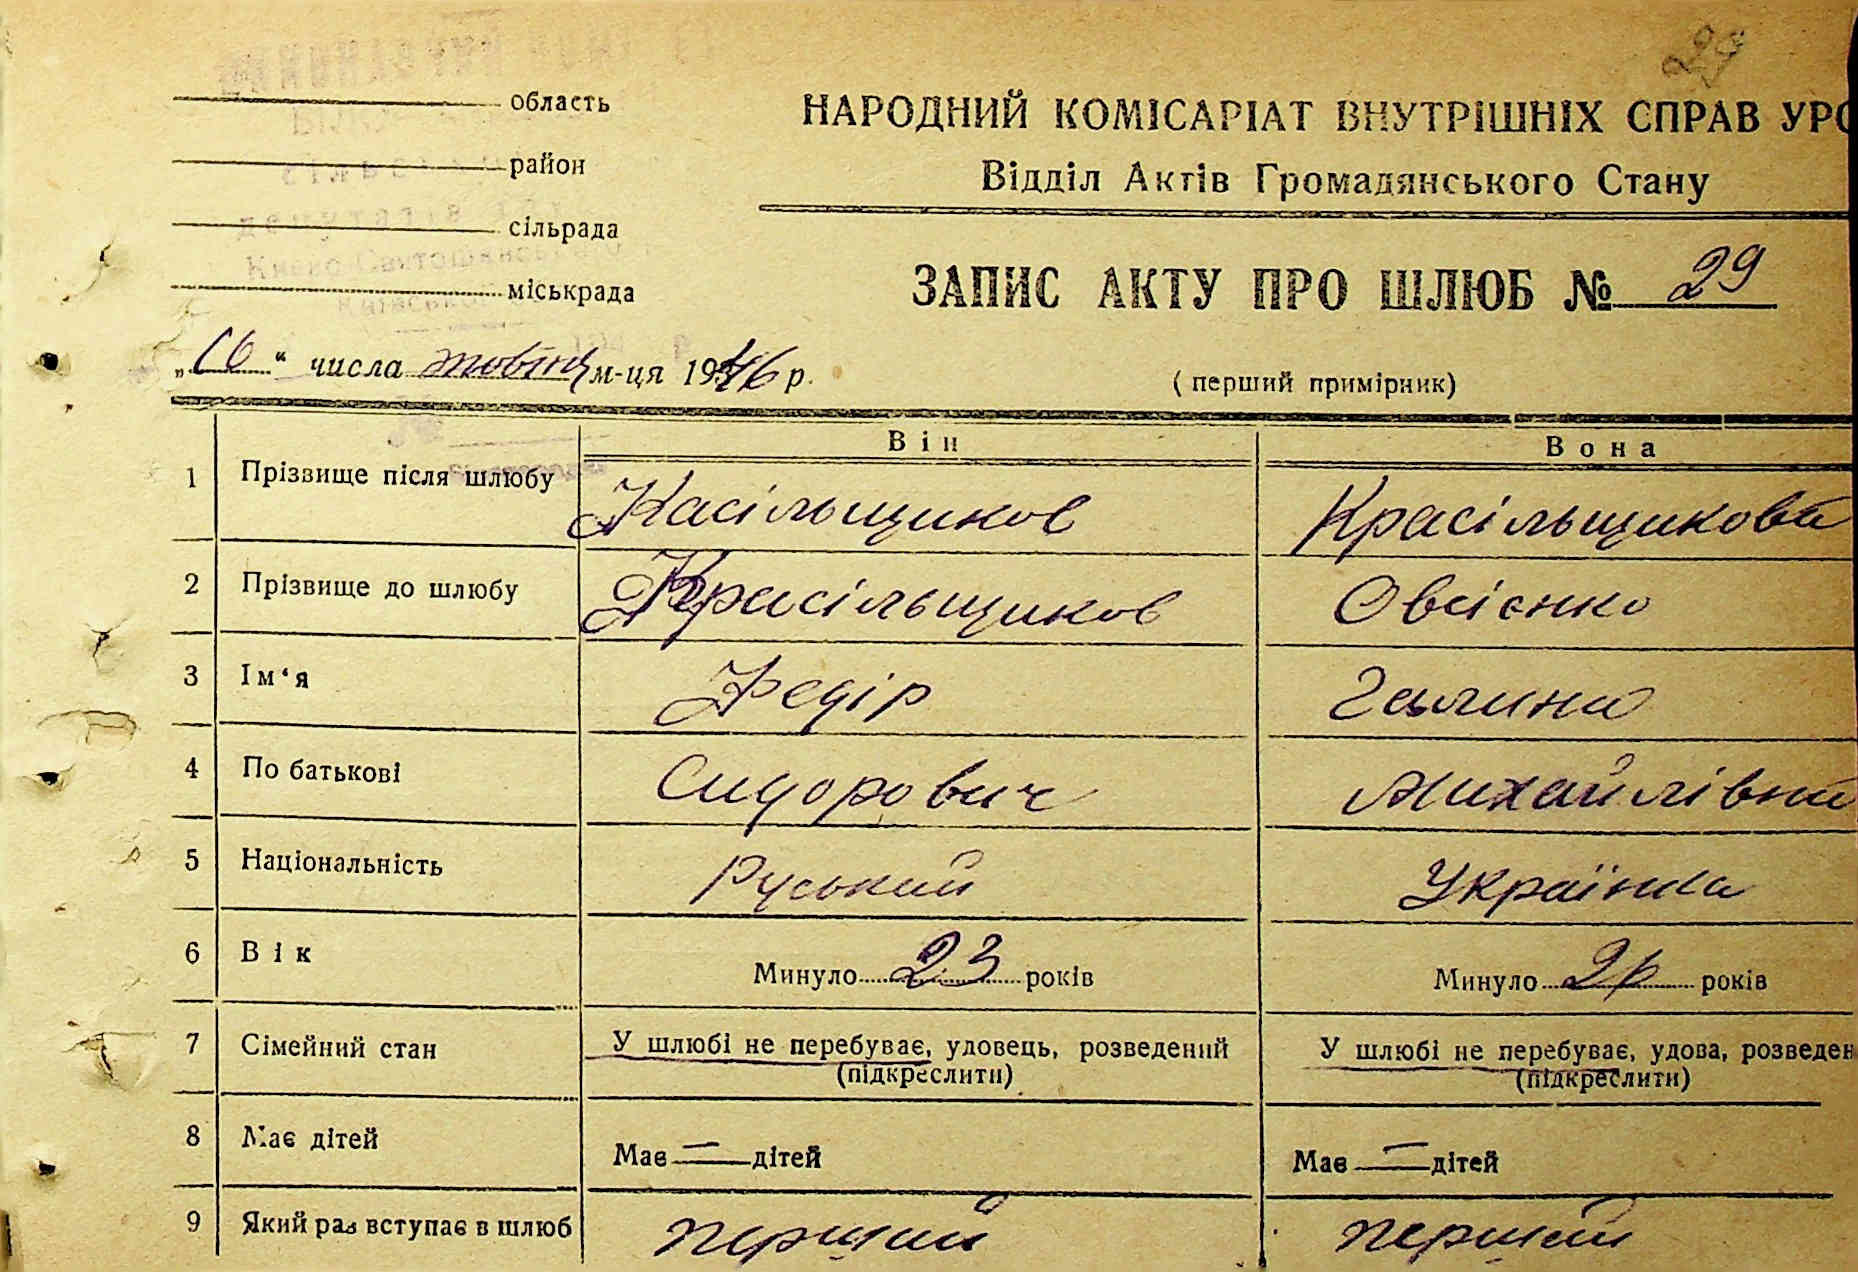 область
район
сільрада
міськрада
НАРОДНИЙ КОМІСАРІАТ ВНУТРІШНІХ СПРАВ УРС
Відділ Актів Громадянського Стану
ЗАПИС АКТУ ПРО ШЛЮБ № 29
„16“ числа жовтня м-ця 1946 р.
(перший примірник)
Він
Вона
1 Прізвище після шлюбу Касільщиков Красільщикова
2 Прізвище до шлюбу Красільщиков Овсієнко
3 Ім‘я Федір Галина
4 По батькові Сидорович Михайлівна
5 Національність Руський Українка
6 Вік Минуло 23 років Минуло років
7 Сімейний стан У шлюбі не перебуває, удовець, розведений У шлюбі не перебуває, удова, розведен
(підкреслити) (підкреслити)
8 Має дітей Має — дітей Має — дітей
9 Який раз вступає в шлюб перший перший